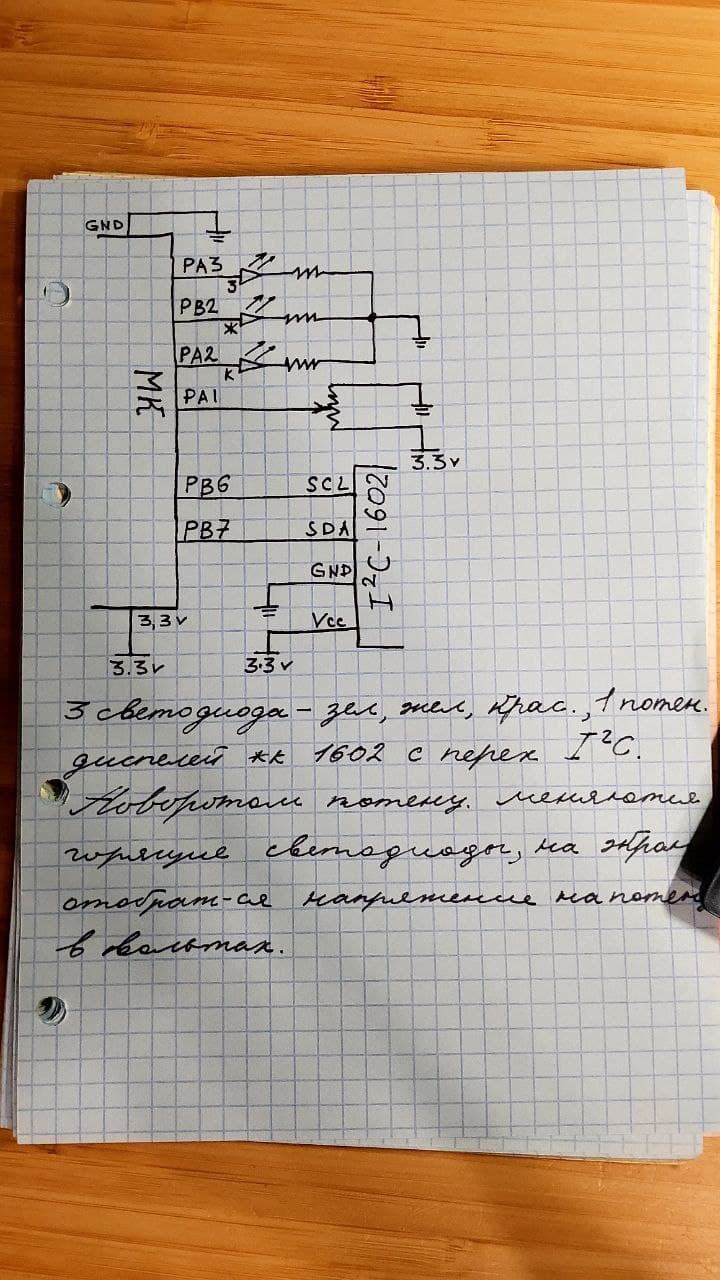 GND
PA3
З
PB2
Ж
PA2
К
PA1
МК
3.3v
PB6 SCL
PB7 SDA
GND
Vcc
I²C-1602
3,3v
3.3v
3.3v
3 светодиода - зел, жел, крас., 1 потен.
дисплей жк 1602 с перех I²C.
Поворотом потенц. меняются
горящие светодиоды, на экран
отображ-ся напряжение на потенц
в вольтах.